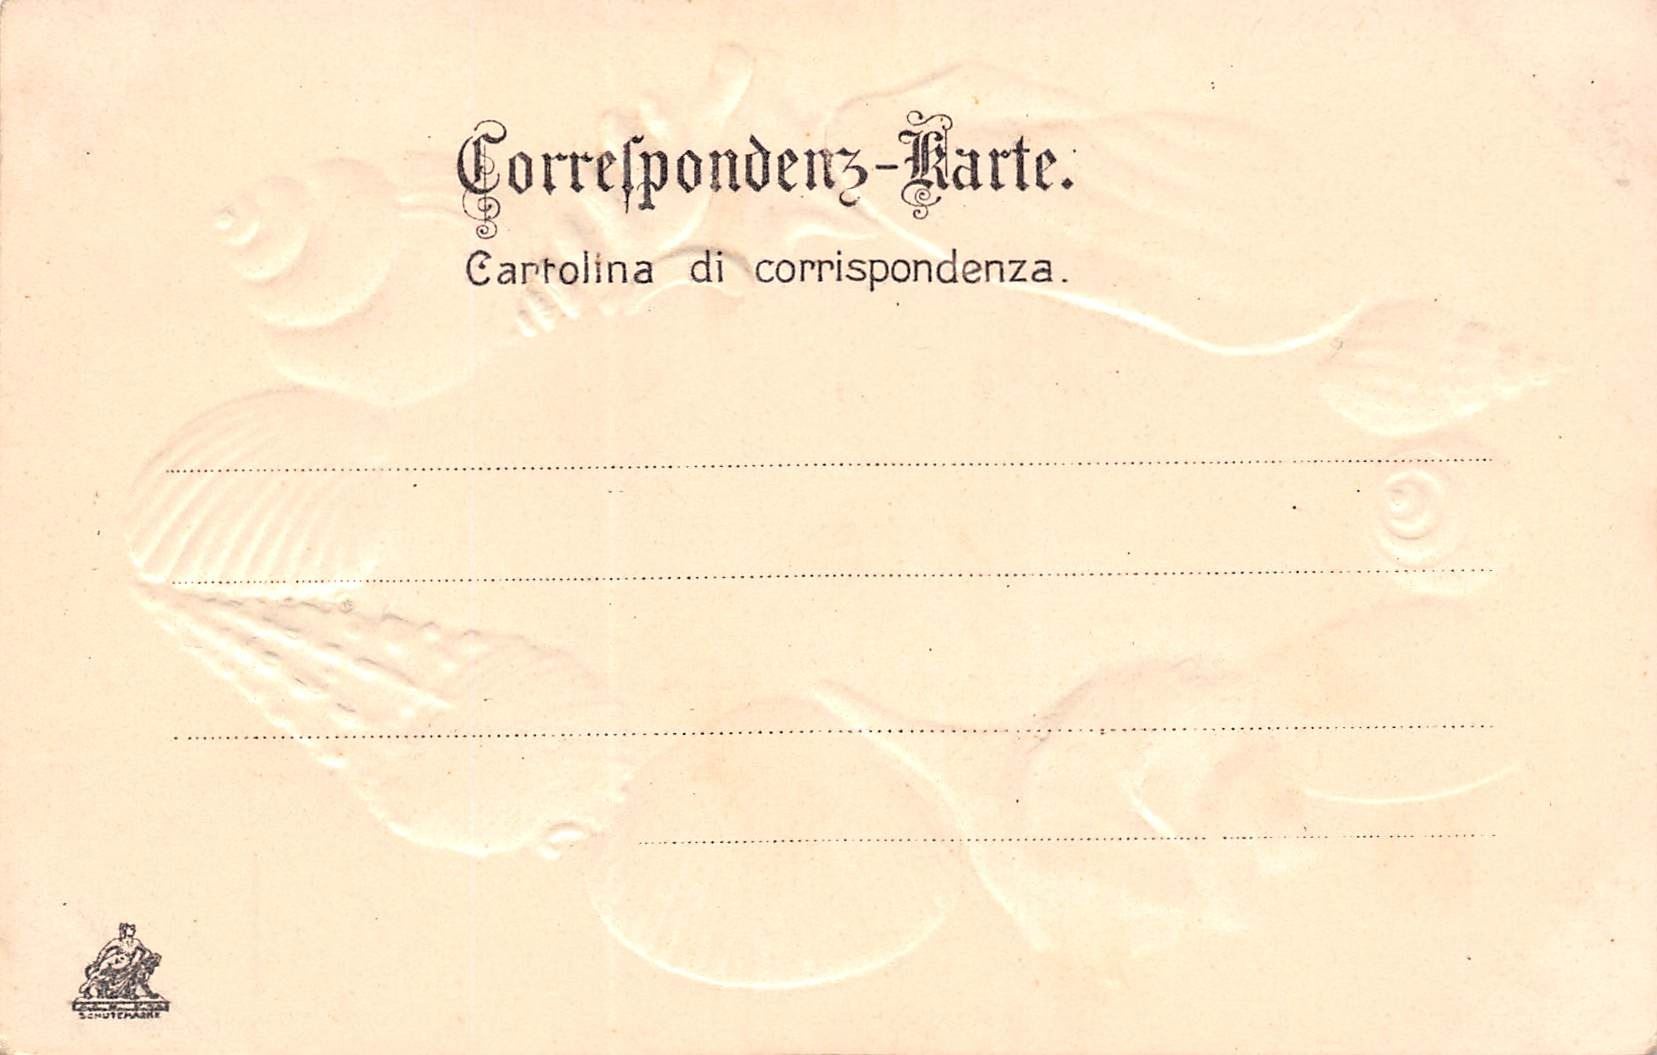 Correſpondenz-Karte.
Cartolina di corrispondenza.
SCHUTZMARKE